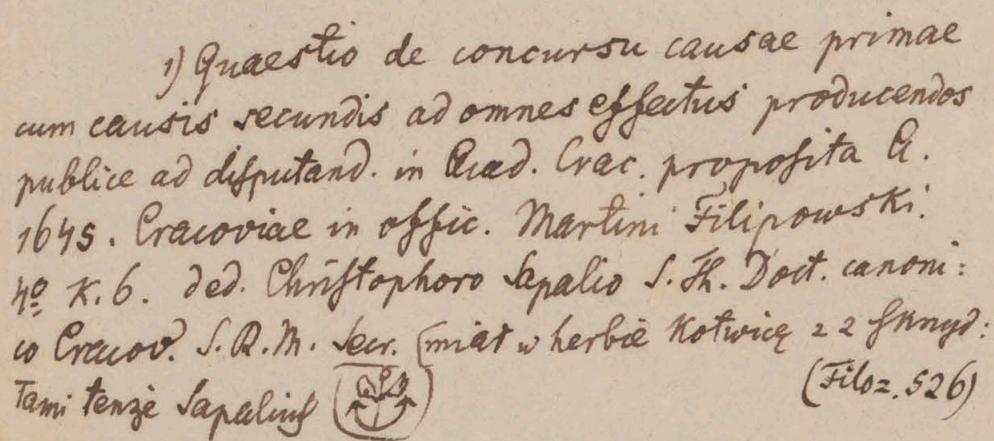 1) Quaestio de concursu causae primae
cum causis secundis ad omnes effectus producendos
publice ad disputand. in Acad. Crac. proposita A.
1645. Cracoviae in offic. Martini Filipowski.
4º K. 6. ded. Christophoro Sapalio S. Th. Doct. canoni:
co Cracov. S. R. M. Secr. (miał w herbie Kotwicę z 2 skrzyd:
łami tenże Sapalius
(Filoz. 526)